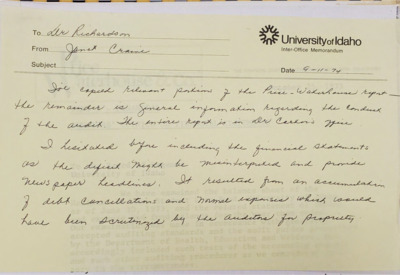 To Dr Richardson
University of Idaho
Inter-Office Memorandum
From Janet Crane
Subject
Date 9-11-74
I've copied relevant portion of the Price-Waterhouse report
the remainder is general information regarding the conduct
of the audit. The entire report is in Dr Carlson's office
I hesitated before including the financial statements
as the deficit might be misinterpreted and provide
newspaper headlines. It resulted from an accumulation
of debt cancellations and normal expenses which would
have been scrutinized by the auditors for propriety